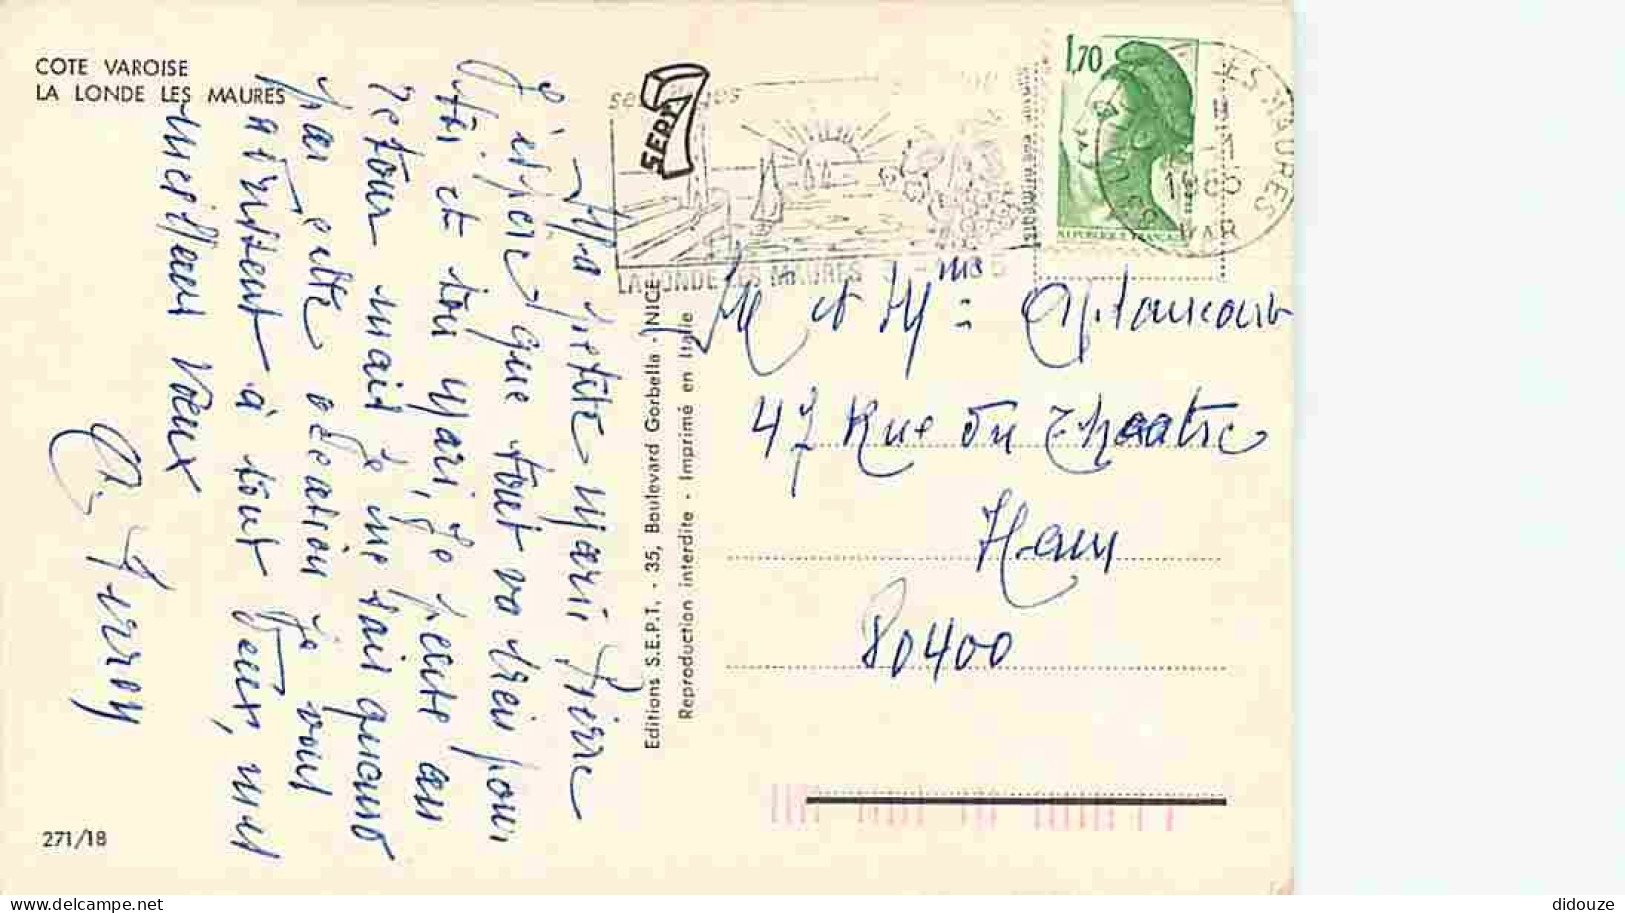 COTE VAROISE
LA LONDE LES MAURES
Ma petite Marie Pierre
J'espère que tout va bien pour
toi et ton Mari, je pense au
retour mais je ne sais quand
Par cette occasion je vous
à tout deux, mes
meilleurs Voeux
271/18
Editions S.E.P.T. - 35, Boulevard Gorbella - NICE
Reproduction interdite - Imprimé en Italie
SEPT
7
LA LONDE LES MAURES
1,70
REPUBLIQUE FRANÇAISE
LES MAURES
VAR
M et Mme
47 Rue du Theatre
Ham
80400
didouze